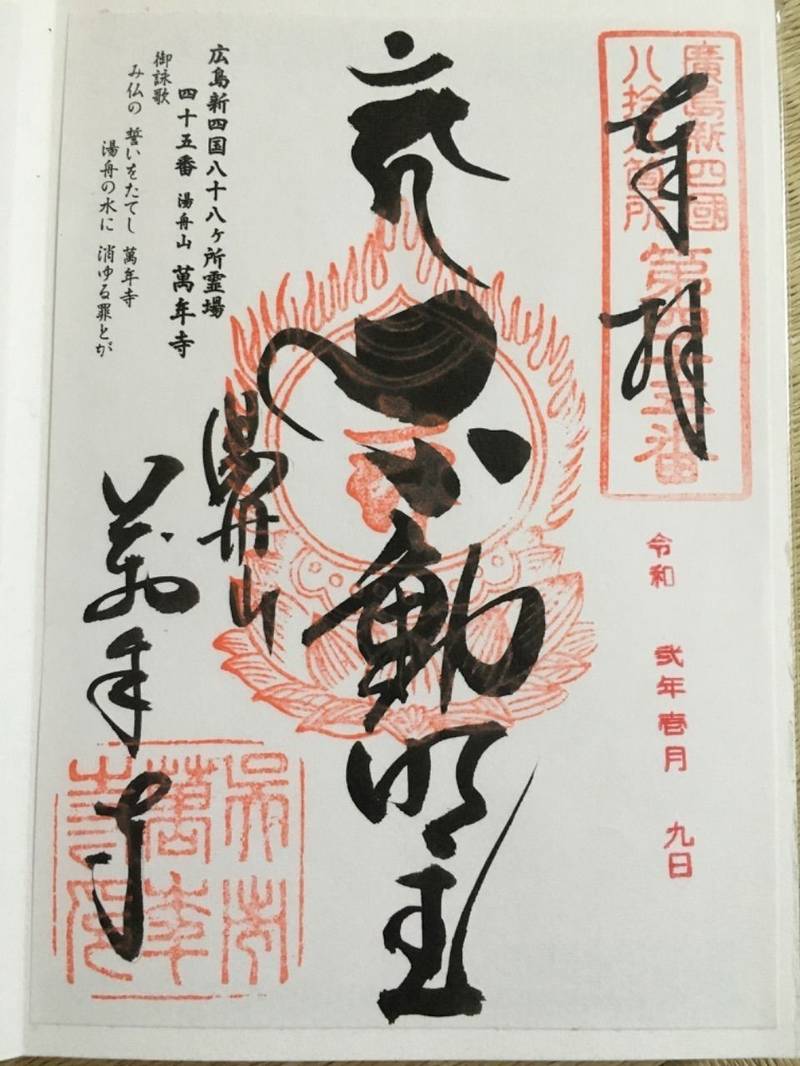 廣島新四國
八拾八箇所
第四十五番
奉拝
令和 弐年壱月 九日
不動明王
広島新四国八十八ヶ所霊場
四十五番 湯舟山 萬年寺
御詠歌
み仏の 誓いをたてし 萬年寺
湯舟の水に 消ゆる罪とが
湯舟山
萬年寺
呉市
萬年
寺印